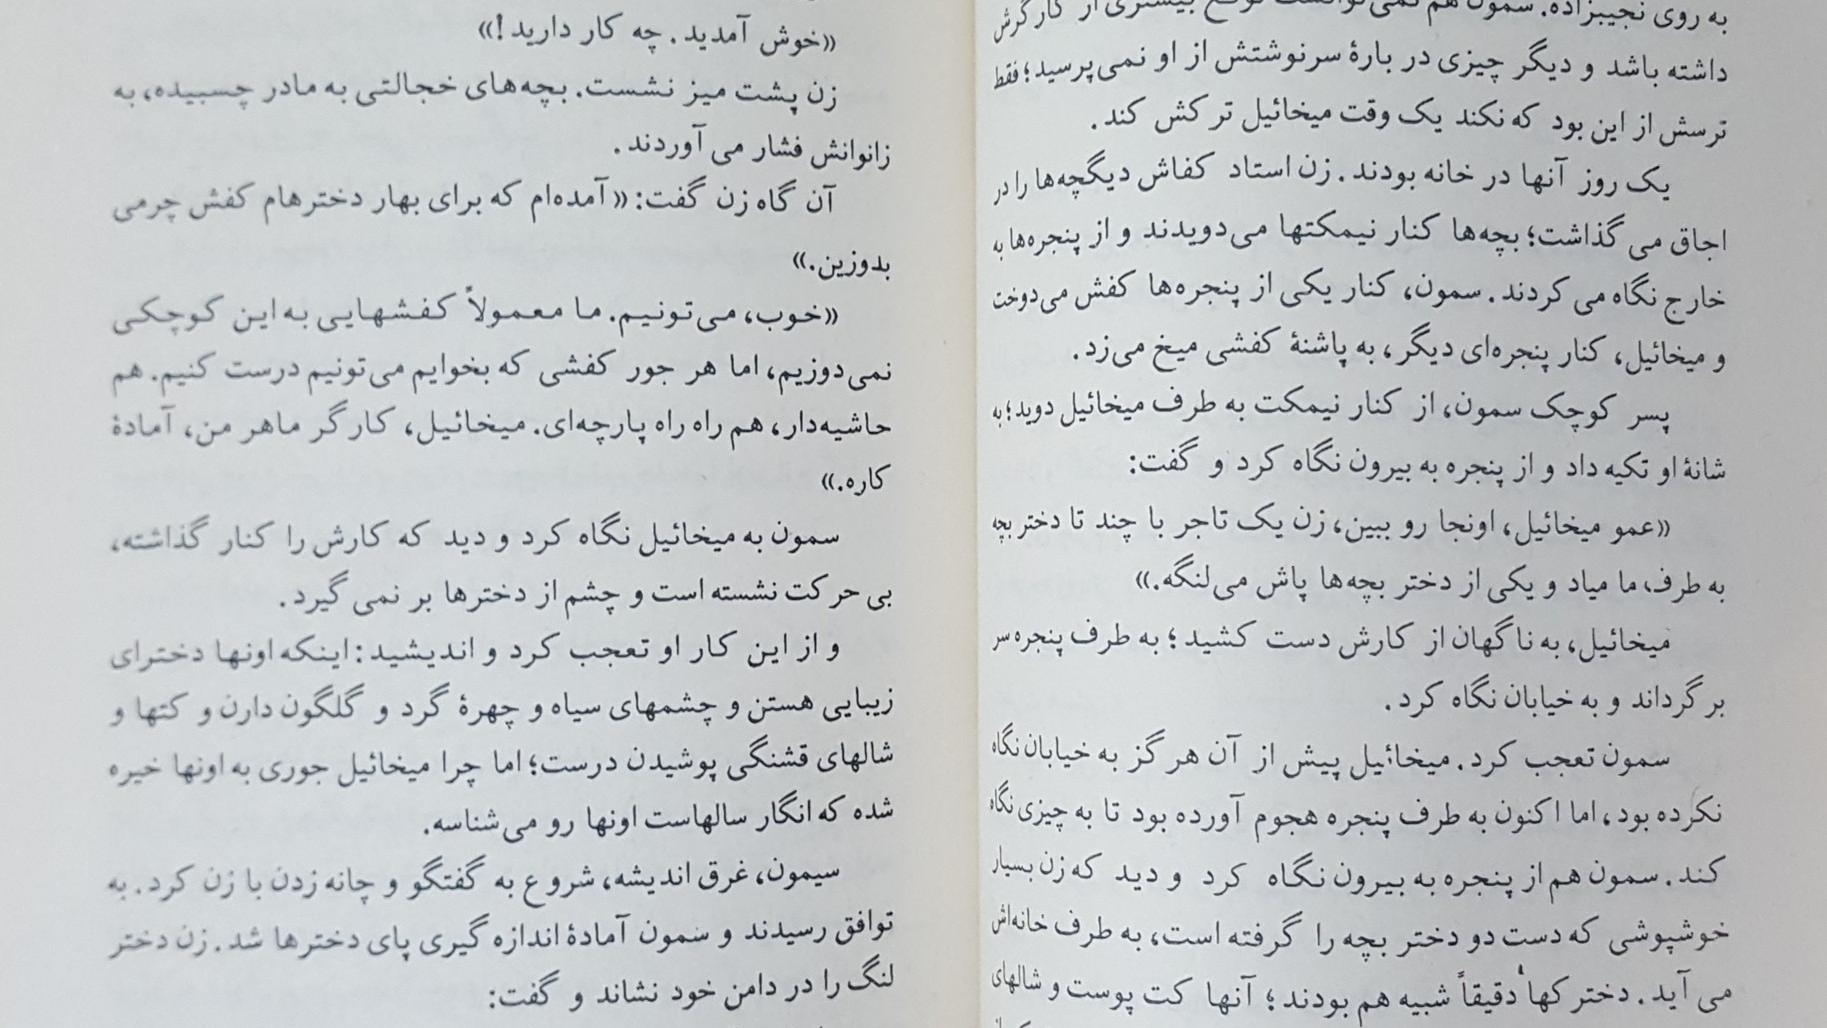 به روی نجیبزاده. سمون هم نمی‌توانست توقع بیشتری از کارگرش
داشته باشد و دیگر چیزی در بارهٔ سرنوشتش از او نمی‌پرسید؛ فقط
ترسش از این بود که نکند یک وقت میخائیل ترکش کند.
یک روز آنها در خانه بودند. زن استاد کفاش دیگچه‌ها را در
اجاق می گذاشت؛ بچه‌ها کنار نیمکتها می‌دویدند و از پنجره‌ها به
خارج نگاه می کردند. سمون، کنار یکی از پنجره‌ها کفش می‌دوخت
و میخائیل، کنار پنجره‌ای دیگر، به پاشنهٔ کفشی میخ می‌زد.
پسر کوچک سمون، از کنار نیمکت به طرف میخائیل دوید؛ به
شانهٔ او تکیه داد و از پنجره به بیرون نگاه کرد و گفت:
«عمو میخائیل، اونجا رو ببین، زن یک تاجر با چند تا دختر بچه
به طرف ما میاد و یکی از دختر بچه‌ها پاش می‌لنگه.»
میخائیل، به ناگهان از کارش دست کشید؛ به طرف پنجره سر
بر گرداند و به خیابان نگاه کرد.
سمون تعجب کرد. میخائیل پیش از آن هرگز به خیابان نگاه
نکرده بود، اما اکنون به طرف پنجره هجوم آورده بود تا به چیزی نگاه
کند. سمون هم از پنجره به بیرون نگاه کرد و دید که زن بسیار
خوشپوشی که دست دو دختر بچه را گرفته است، به طرف خانه‌اش
می آید. دخترکها دقیقاً شبیه هم بودند؛ آنها کت پوست و شالهای
«خوش آمدید. چه کار دارید!»
زن پشت میز نشست. بچه‌های خجالتی به مادر چسبیده، به
زانوانش فشار می آوردند.
آن گاه زن گفت: «آمده‌ام که برای بهار دخترهام کفش چرمی
بدوزین.»
«خوب، می‌تونیم. ما معمولاً کفشهایی به این کوچکی
نمی‌دوزیم، اما هر جور کفشی که بخوایم می‌تونیم درست کنیم. هم
حاشیه‌دار، هم راه راه پارچه‌ای. میخائیل، کارگر ماهر من، آمادهٔ
کاره.»
سمون به میخائیل نگاه کرد و دید که کارش را کنار گذاشته،
بی حرکت نشسته است و چشم از دخترها بر نمی گیرد.
و از این کار او تعجب کرد و اندیشید: اینکه اونها دخترای
زیبایی هستن و چشمهای سیاه و چهرهٔ گرد و گلگون دارن و کتها و
شالهای قشنگی پوشیدن درست؛ اما چرا میخائیل جوری به اونها خیره
شده که انگار سالهاست اونها رو می‌شناسه.
سیمون، غرق اندیشه، شروع به گفتگو و چانه زدن با زن کرد. به
توافق رسیدند و سمون آمادهٔ اندازه گیری پای دخترها شد. زن دختر
لنگ را در دامن خود نشاند و گفت: